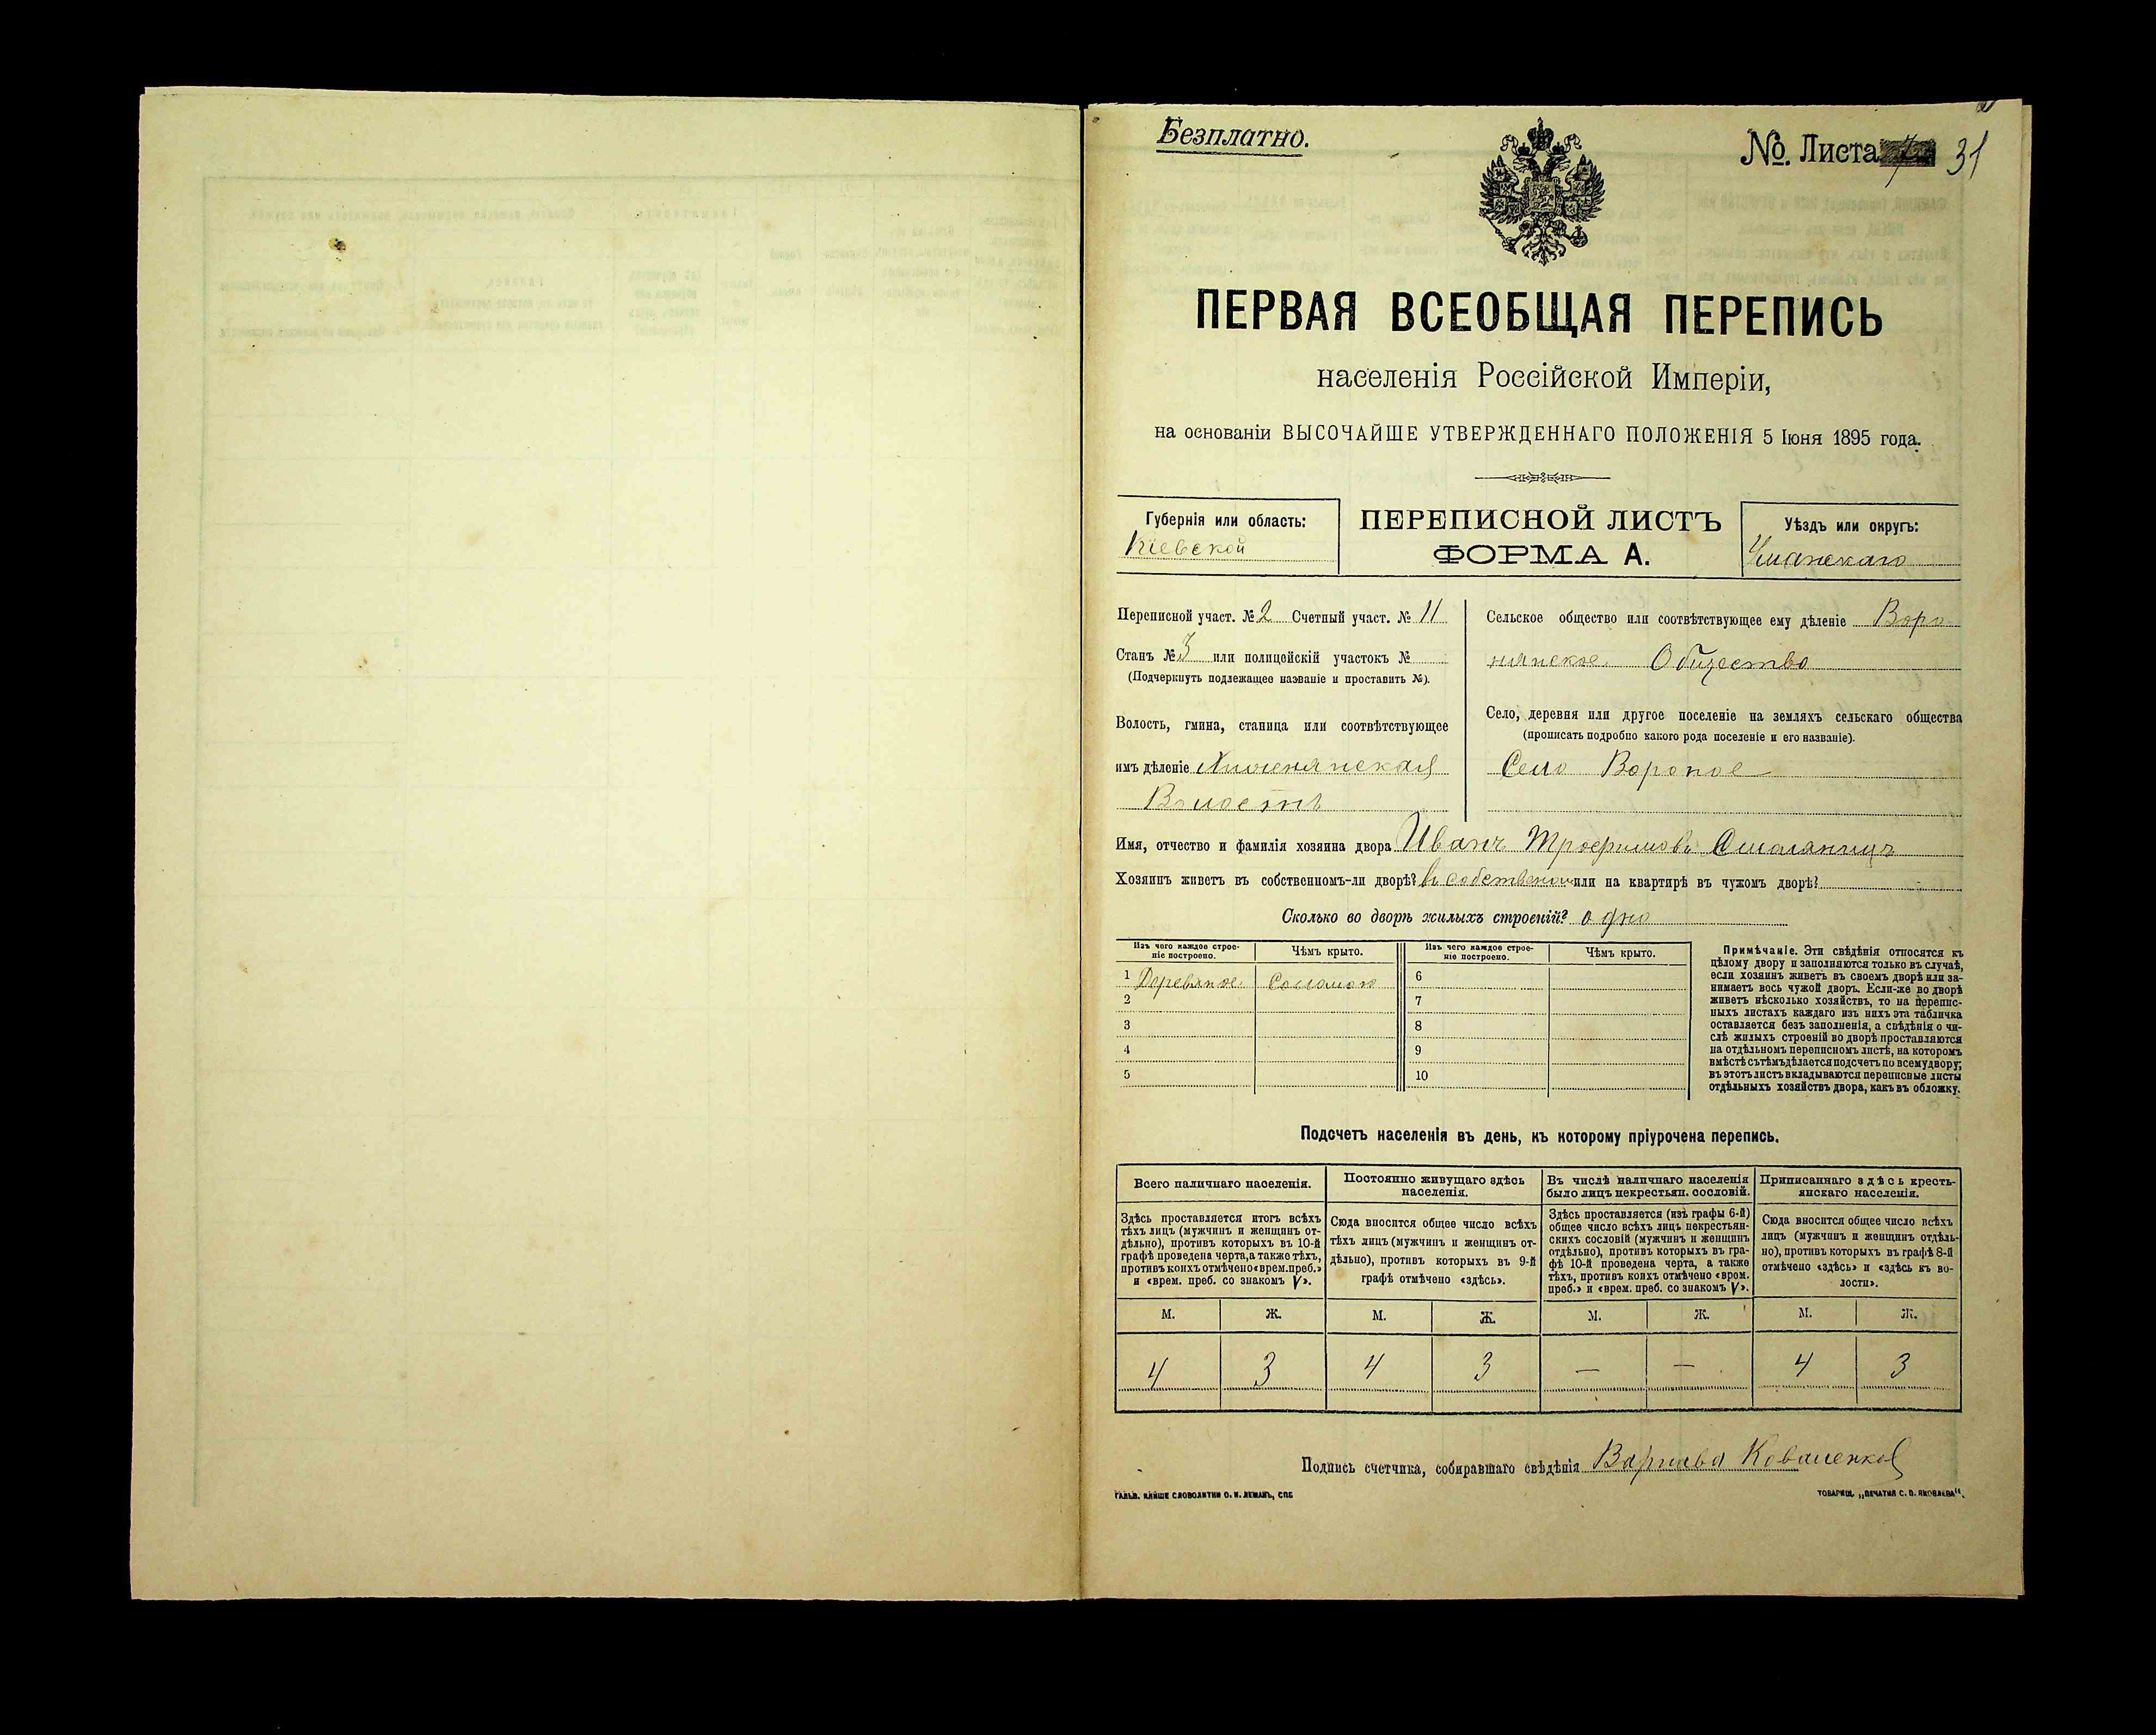 Безплатно.
№. Листа 7 31
ПЕРВАЯ ВСЕОБЩАЯ ПЕРЕПИСЬ
населенія Россійской Имперіи,
на основаніи ВЫСОЧАЙШЕ УТВЕРЖДЕННАГО ПОЛОЖЕНІЯ 5 Іюня 1895 года.
Губернія или область:
Кіевской
ПЕРЕПИСНОЙ ЛИСТЪ
ФОРМА А.
Уѣздъ или округъ:
Уманскаго
Переписной участ. № 2 Счетный участ. № 11
Станъ № 3 или полицейскій участокъ №
(Подчеркнуть подлежащее названіе и проставить №).
Волость, гмина, станица или соотвѣтствующее
имъ дѣленіе
Волость
Сельское общество или соотвѣтствующее ему дѣленіе Воро-
нянское Общество
Село, деревня или другое поселеніе на земляхъ сельскаго общества
(прописать подробно какого рода поселеніе и его названіе).
Село Вороное
Имя, отчество и фамилія хозяина двора Иванъ Трофимовъ Смоляниць
Хозяинъ живетъ въ собственномъ-ли дворѣ? въ собственом или на квартирѣ въ чужомъ дворѣ?
Сколько во дворѣ жилыхъ строеній? одно
Изъ чего каждое строе-
ніе построено.
Чѣмъ крыто.
Изъ чего каждое строе-
ніе построено.
Чѣмъ крыто.
1 Деревяное Соломою 6
2 7
3 8
4 9
5 10
Примѣчаніе. Эти свѣдѣнія относятся къ
цѣлому двору и заполняются только въ случаѣ,
если хозяинъ живетъ въ своемъ дворѣ или за-
нимаетъ весь чужой дворъ. Если-же во дворѣ
живетъ нѣсколько хозяйствъ, то на перепис-
ныхъ листахъ каждаго изъ нихъ эта табличка
оставляется безъ заполненія, а свѣдѣнія о чи-
слѣ жилыхъ строеній во дворѣ проставляются
на отдѣльномъ переписномъ листѣ, на которомъ
вмѣстѣ съ тѣмъ дѣлается подсчетъ по всему двору;
въ этотъ листъ вкладываются переписные листы
отдѣльныхъ хозяйствъ двора, какъ въ обложку.
Подсчетъ населенія въ день, къ которому пріурочена перепись.
Всего наличнаго населенія.
Постоянно живущаго здѣсь
населенія.
Въ числѣ наличнаго населенія
было лицъ некрестьян. сословій.
Приписаннаго здѣсь кресть-
янскаго населенія.
Здѣсь проставляется итогъ всѣхъ
тѣхъ лицъ (мужчинъ и женщинъ от-
дѣльно), противъ которыхъ въ 10-й
графѣ проведена черта, а также тѣхъ,
противъ коихъ отмѣчено «врем. преб.»
и «врем. преб. со знакомъ V».
Сюда вносится общее число всѣхъ
тѣхъ лицъ (мужчинъ и женщинъ от-
дѣльно), противъ которыхъ въ 9-й
графѣ отмѣчено «здѣсь».
Здѣсь проставляется (изъ графы 6-й)
общее число всѣхъ лицъ некрестьян-
скихъ сословій (мужчинъ и женщинъ
отдѣльно), противъ которыхъ въ гра-
фѣ 10-й проведена черта, а также
тѣхъ, противъ коихъ отмѣчено «врем.
преб.» и «врем. преб. со знакомъ V».
Сюда вносится общее число всѣхъ
лицъ (мужчинъ и женщинъ отдѣль-
но), противъ которыхъ въ графѣ 8-й
отмѣчено «здѣсь» и «здѣсь къ во-
лости».
М. Ж. М. Ж. М. Ж. М. Ж.
4 3 4 3 — — 4 3
Подпись счетчика, собиравшаго свѣдѣнія Варнава Коваленко
ГАЛЬВ. КЛИШЕ СЛОВОЛИТНИ О. И. ЛЕМАНЪ, СПБ
ТОВАРИЩ. „ПЕЧАТНЯ С. П. ЯКОВЛЕВА".